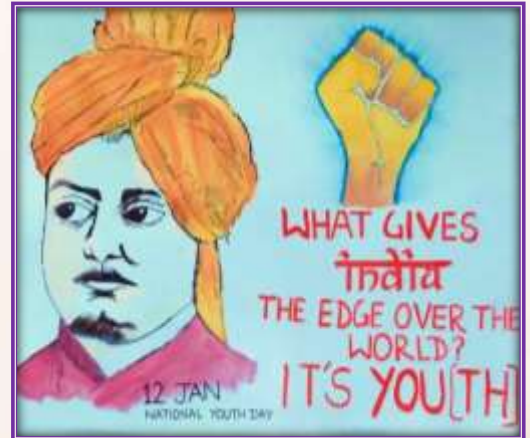 WHAT GIVES
india
THE EDGE OVER THE
WORLD?
IT'S YOU[TH]
12 JAN
NATIONAL YOUTH DAY